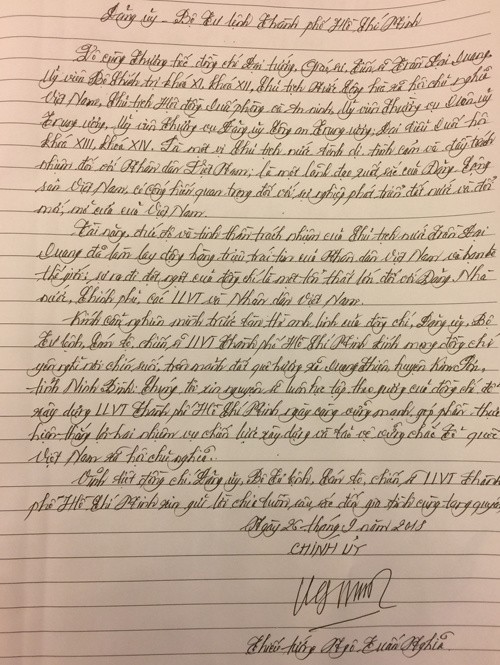 Đảng ủy - Bộ Tư lệnh Thành phố Hồ Chí Minh
Vô cùng thương tiếc đồng chí Đại tướng, Giáo sư, Tiến sĩ Trần Đại Quang,
Ủy viên Bộ Chính trị khóa XI, khóa XII, Chủ tịch nước Cộng hòa xã hội chủ nghĩa
Việt Nam, Chủ tịch Hội đồng Quốc phòng và An ninh, Ủy viên Thường vụ Quân ủy
Trung ương, Ủy viên Thường vụ Đảng ủy Công an Trung ương, Đại biểu Quốc hội
khóa XIII, khóa XIV. Là một vị Chủ tịch nước bình dị, tình cảm và đầy trách
nhiệm đối với Nhân dân Việt Nam; là một lãnh đạo xuất sắc của Đảng Cộng
sản Việt Nam, có cống hiến quan trọng đối với sự nghiệp phát triển đất nước và đổi
mới, mở cửa của Việt Nam.
Tài năng, chí và tinh thần trách nhiệm của Chủ tịch nước Trần Đại
Quang đã làm lay động hàng triệu trái tim của Nhân dân Việt Nam và bạn bè
thế giới; sự ra đi đột ngột của đồng chí là một tổn thất lớn đối với Đảng, Nhà
nước, Chính phủ, các LLVT và Nhân dân Việt Nam.
Kính cẩn nghiêng mình trước anh linh của đồng chí, Đảng ủy, Bộ
Tư lệnh, cán bộ, chiến sĩ LLVT Thành phố Hồ Chí Minh kính mong đồng chí
yên nghỉ nơi chín suối, trên mảnh đất quê hương xã Quang Thiện, huyện Kim Sơn,
tỉnh Ninh Bình. Chúng tôi xin nguyện sẽ luôn học tập theo gương của đồng chí để
xây dựng LLVT Thành phố Hồ Chí Minh ngày càng vững mạnh, góp phần thực
hiện thắng lợi hai nhiệm vụ chiến lược xây dựng và bảo vệ vững chắc Tổ quốc
Việt Nam xã hội chủ nghĩa.
Vĩnh biệt đồng chí, Đảng ủy, Bộ Tư lệnh, cán bộ, chiến sĩ LLVT Thành
phố Hồ Chí Minh xin gửi lời chia buồn sâu sắc đến gia đình cùng tang quyến.
Ngày 26 tháng 9 năm 2018
CHÍNH ỦY
Thiếu tướng Ngô Tuấn Nghĩa